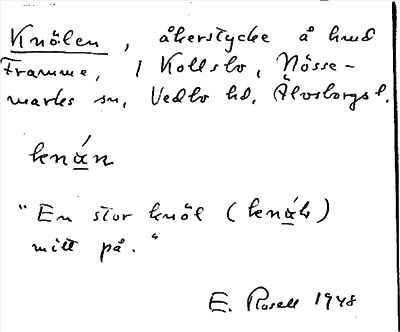 Knölen, åkerstycke å hmd
Framme, 1 Kollsbo, Nösse-
marks sn, Vedbo hd, Älvsborgs l.
knán
"En stor knöl (knáh)
mitt på."
E. Rosell 1948